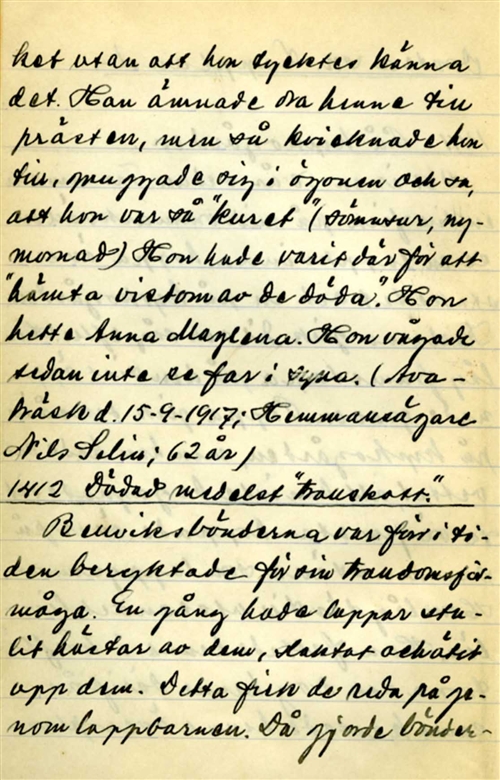 ket utan att hon tycktes känna
det. Han ämnade dra henne till
prästen, men så kvicknade hon
till, gnuggade sig i ögonen och sa,
att hon var så "kuret" (sömnsur, ny-
mornad) Hon hade varit där för att
"hämta visdom av de döda". Hon
hette Anna Maglena. Hon vågade
sedan inte se far i syna. (Ava-
träsk d. 15-9-1917; Hemmansägare
Nils Selin; 62 år)
1412 Dödad medelst "trauskott."
Benviksbönderna var förr i ti-
den beryktade för sin troudomsför-
måga. En gång hade lappar stu-
lit hästar av dem, slaktat och ätit
upp dem. Detta fick de reda på ge-
nom lappbarnen. Då gjorde bönder-